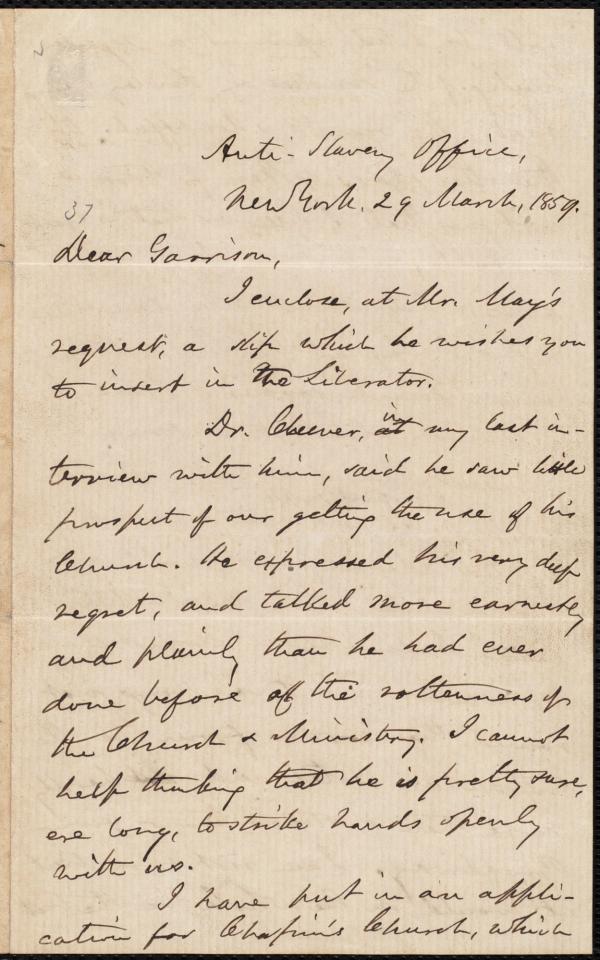 Anti-Slavery Office,
New York, 29 March, 1859.
37
Dear Garrison,
I enclose, at Mr. May's
request, a slip which he wishes you
to insert in The Liberator.
Dr. Cheever, in my last in-
terview with him, said he saw little
prospect of our getting the use of his
Church. He expressed his very deep
regret, and talked more earnestly
and plainly than he had ever
done before of the rottenness of
the Church & Ministry. I cannot
help thinking that he is pretty sure,
ere long, to strike hands openly
with us.
I have put in an appli-
cation for Chapin's Church, which